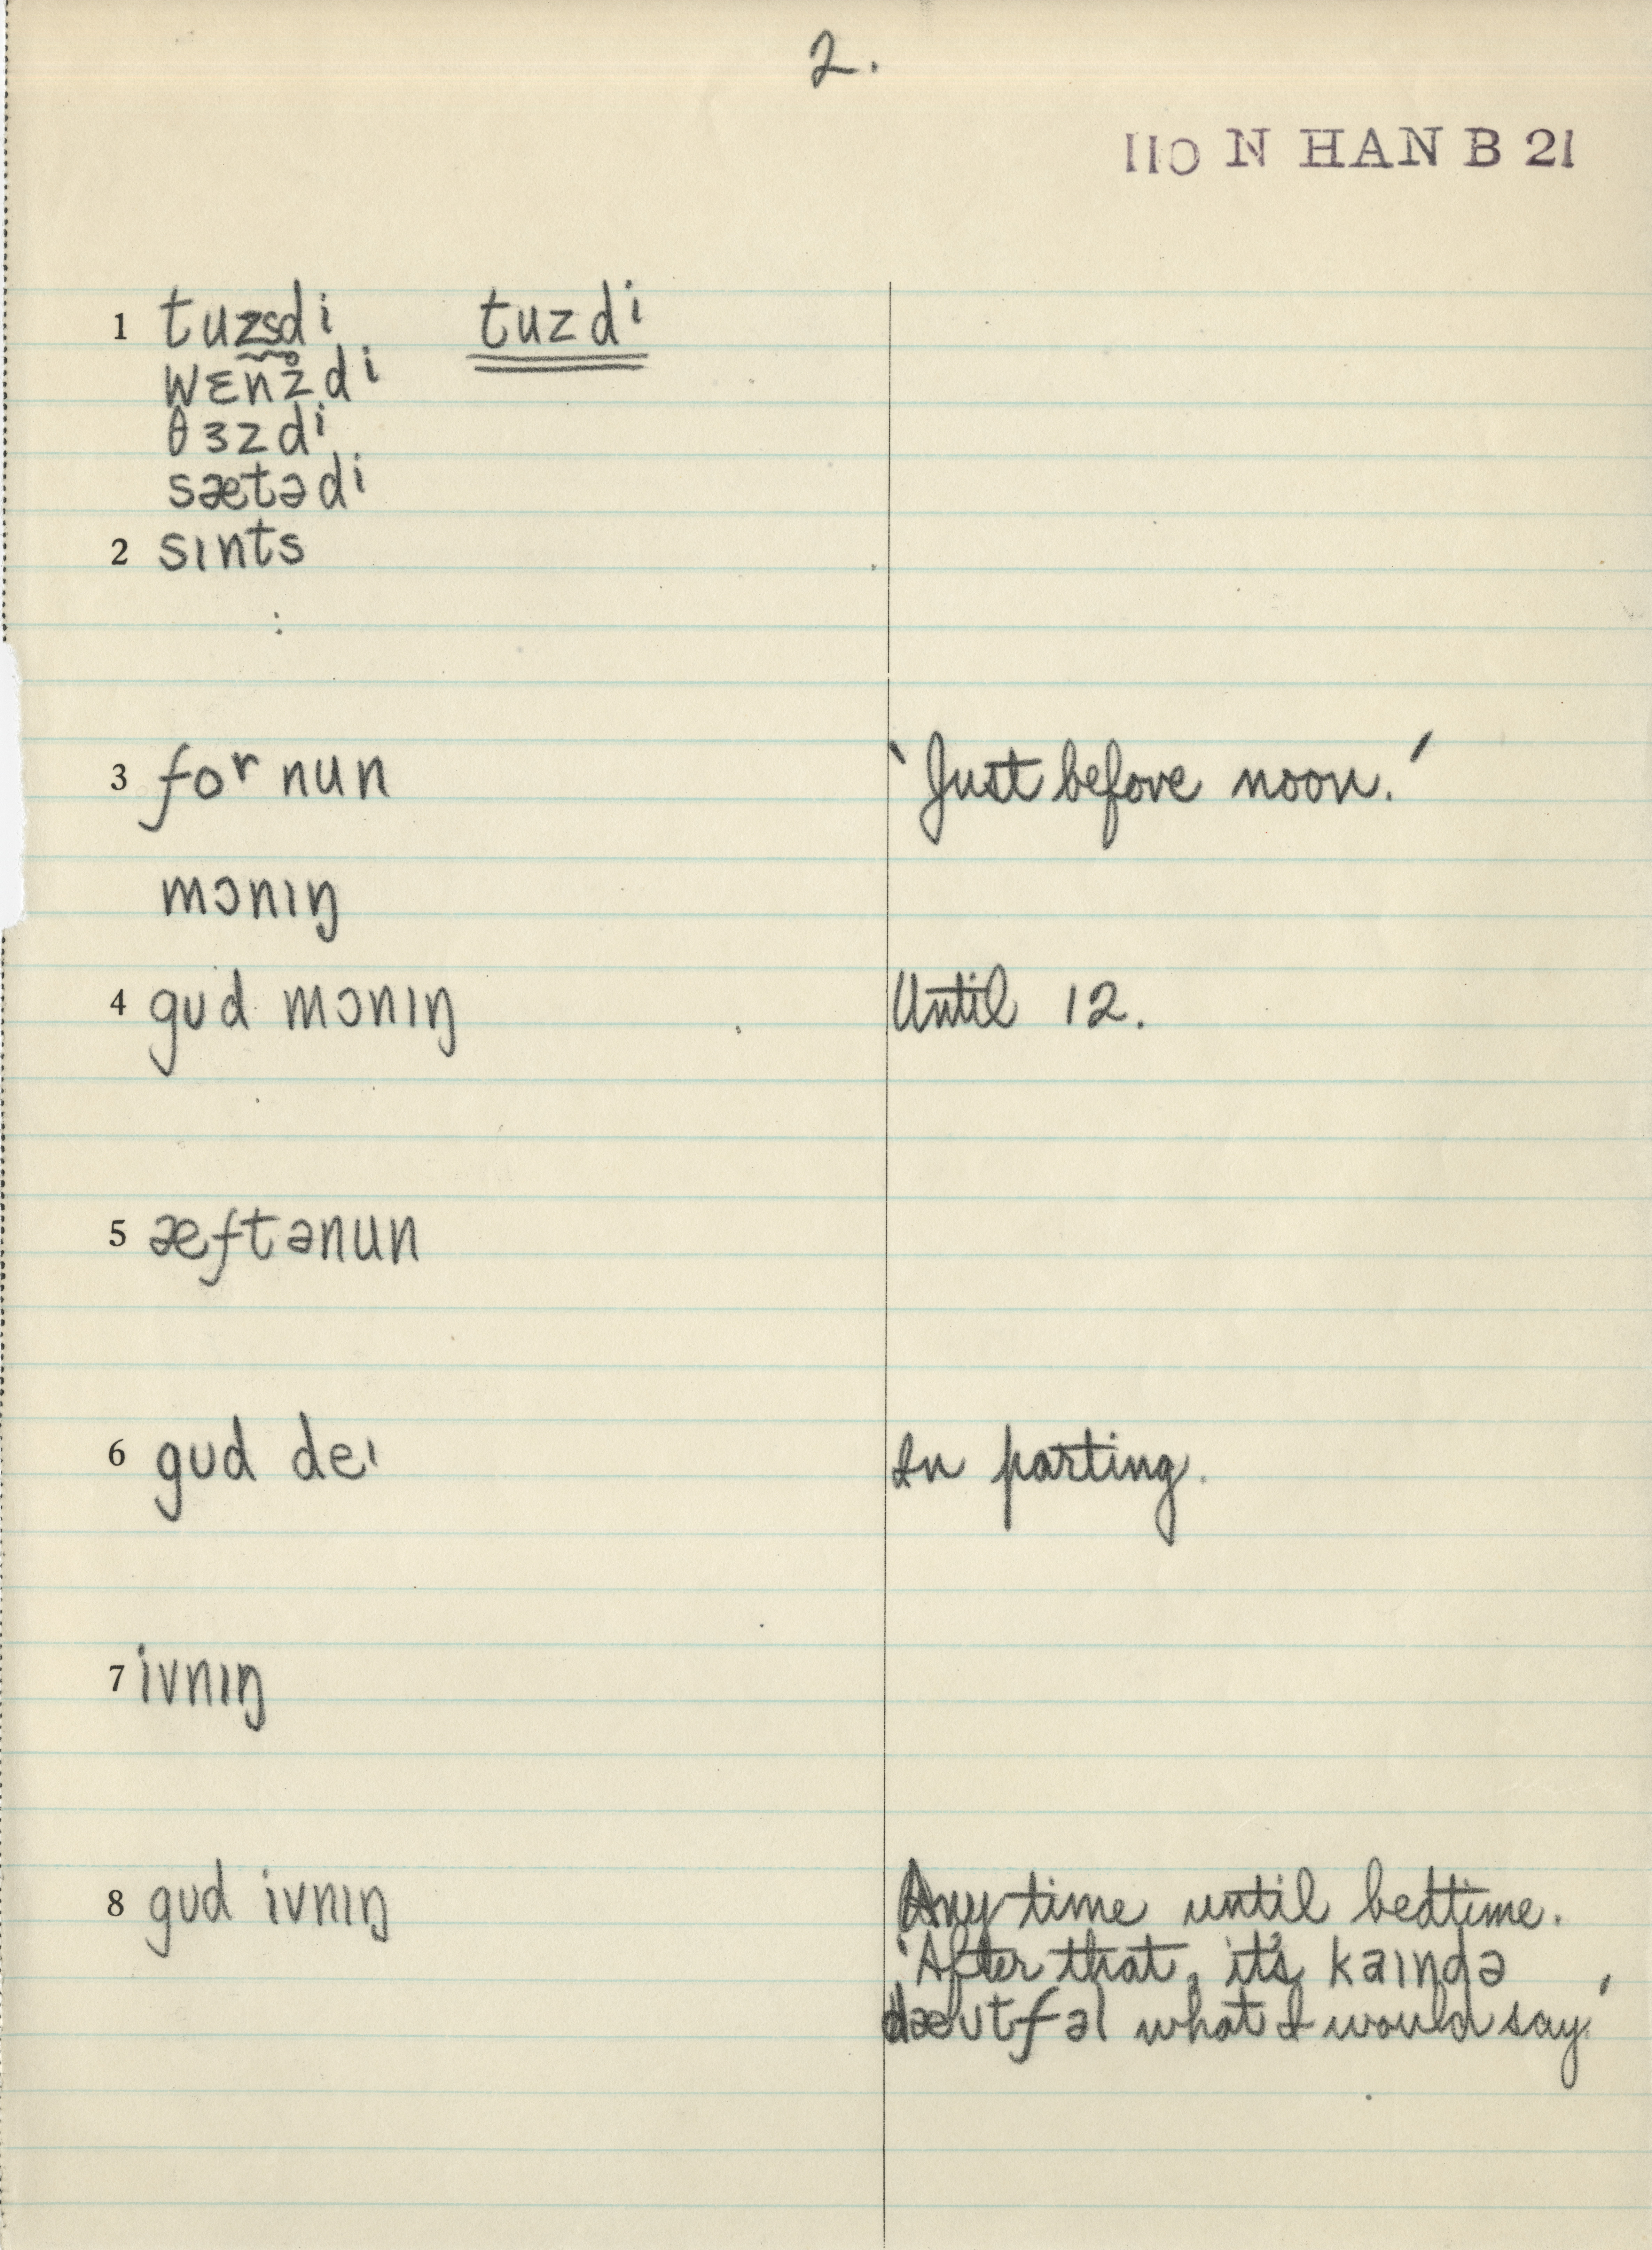 2.
110 N HAN B 21
1 tuzsdi tuzdi
wɛnz̥di
θɜzdi
sætədi
2 sɪnts
3 foʳ nun 'Just before noon.'
mɔnɪŋ
4 gʊd mɔnɪŋ Until 12.
5 æftənun
6 gʊd deɪ In parting.
7 ivnɪŋ
8 gʊd ivnɪŋ Any time until bedtime.
'After that, it's kaɪndə
dæʊtfəl what I would say.'